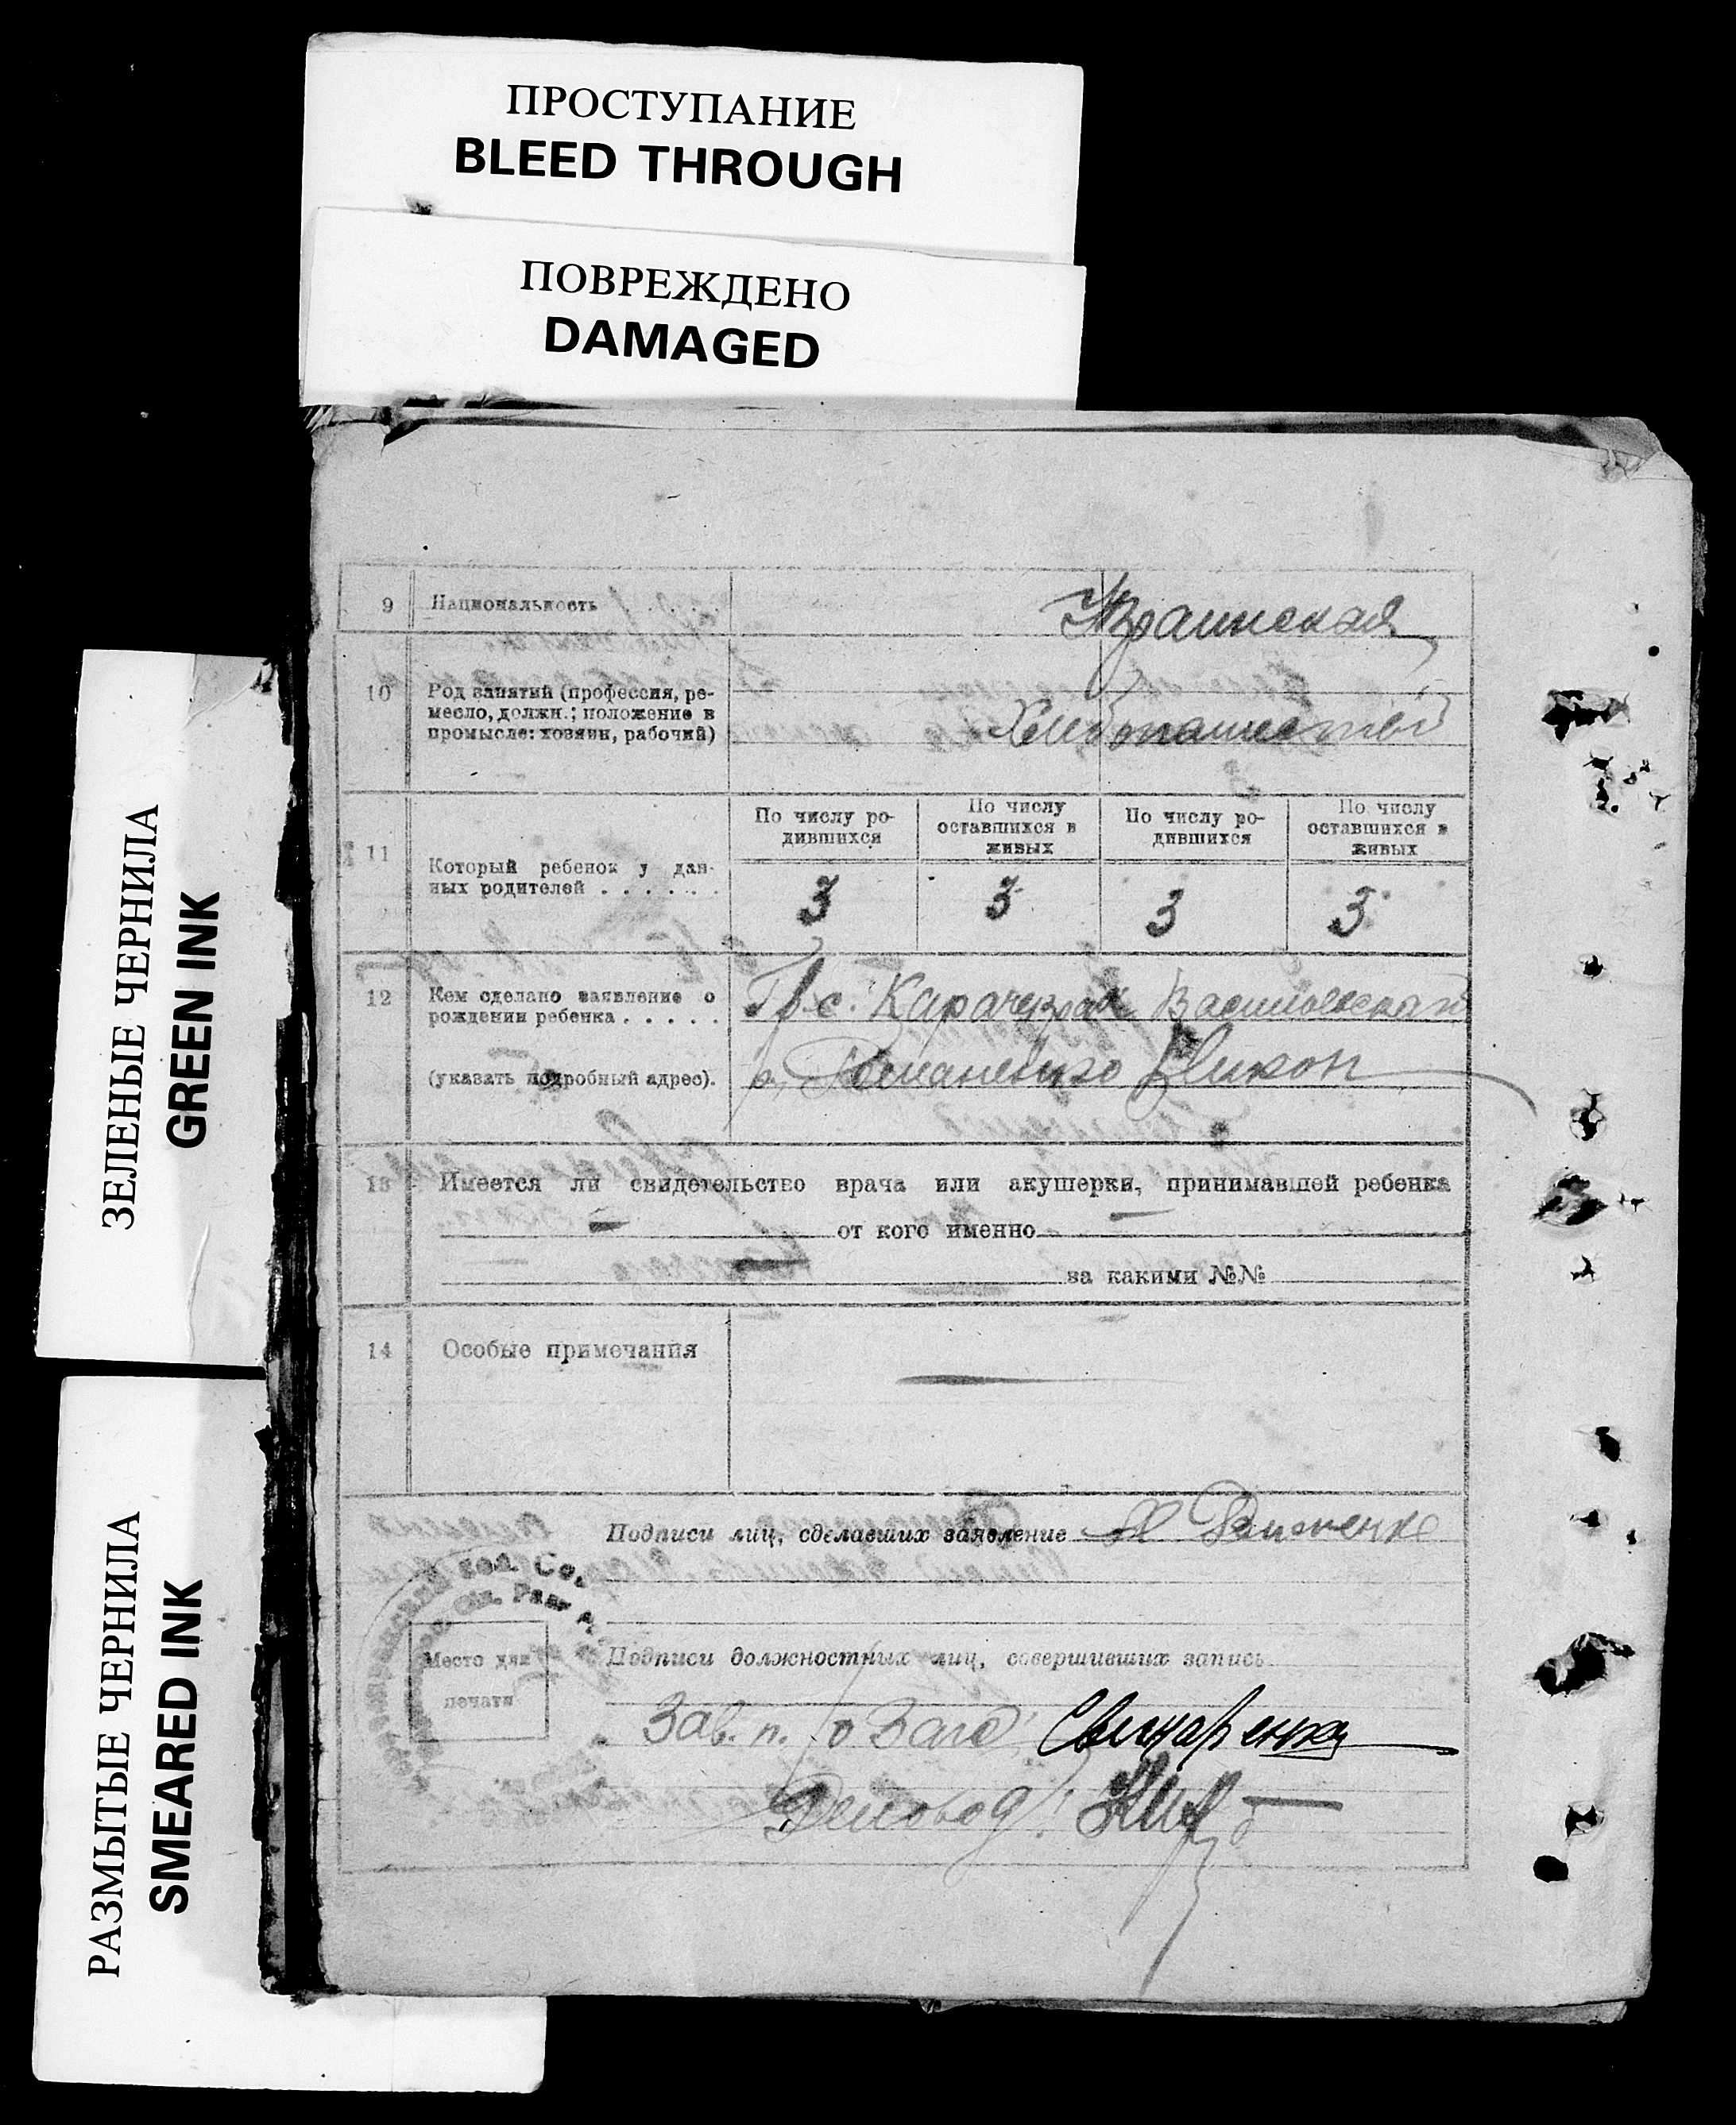 ПРОСТУПАНИЕ
BLEED THROUGH
ПОВРЕЖДЕНО
DAMAGED
ЗЕЛЕНЫЕ ЧЕРНИЛА
GREEN INK
РАЗМЫТЫЕ ЧЕРНИЛА
SMEARED INK
9 Национальность . . . . Украинская
10 Род занятий (профессия, ре-
месло, должн.; положение в
промысле: хозяин, рабочий)
По числу ро-
дившихся
По числу
оставшихся в
живых
По числу ро-
дившихся
По числу
оставшихся в
живых
11 Который ребенок у дан-
ных родителей . . . . . .
3 3 3 3
12 Кем сделано заявление о
рождении ребенка . . . . .
(указать подробный адрес).
Гр. с. Карачекрак Василевского
р. Романенко Никон
13 Имеется ли свидетельство врача или акушерки, принимавшей ребенка
от кого именно
за какими №№
14 Особые примечания
Подписи лиц, сделавших заявление
Место для
печати
Подписи должностных лиц, совершивших запись
Зав. п/о Загс
Деловод: